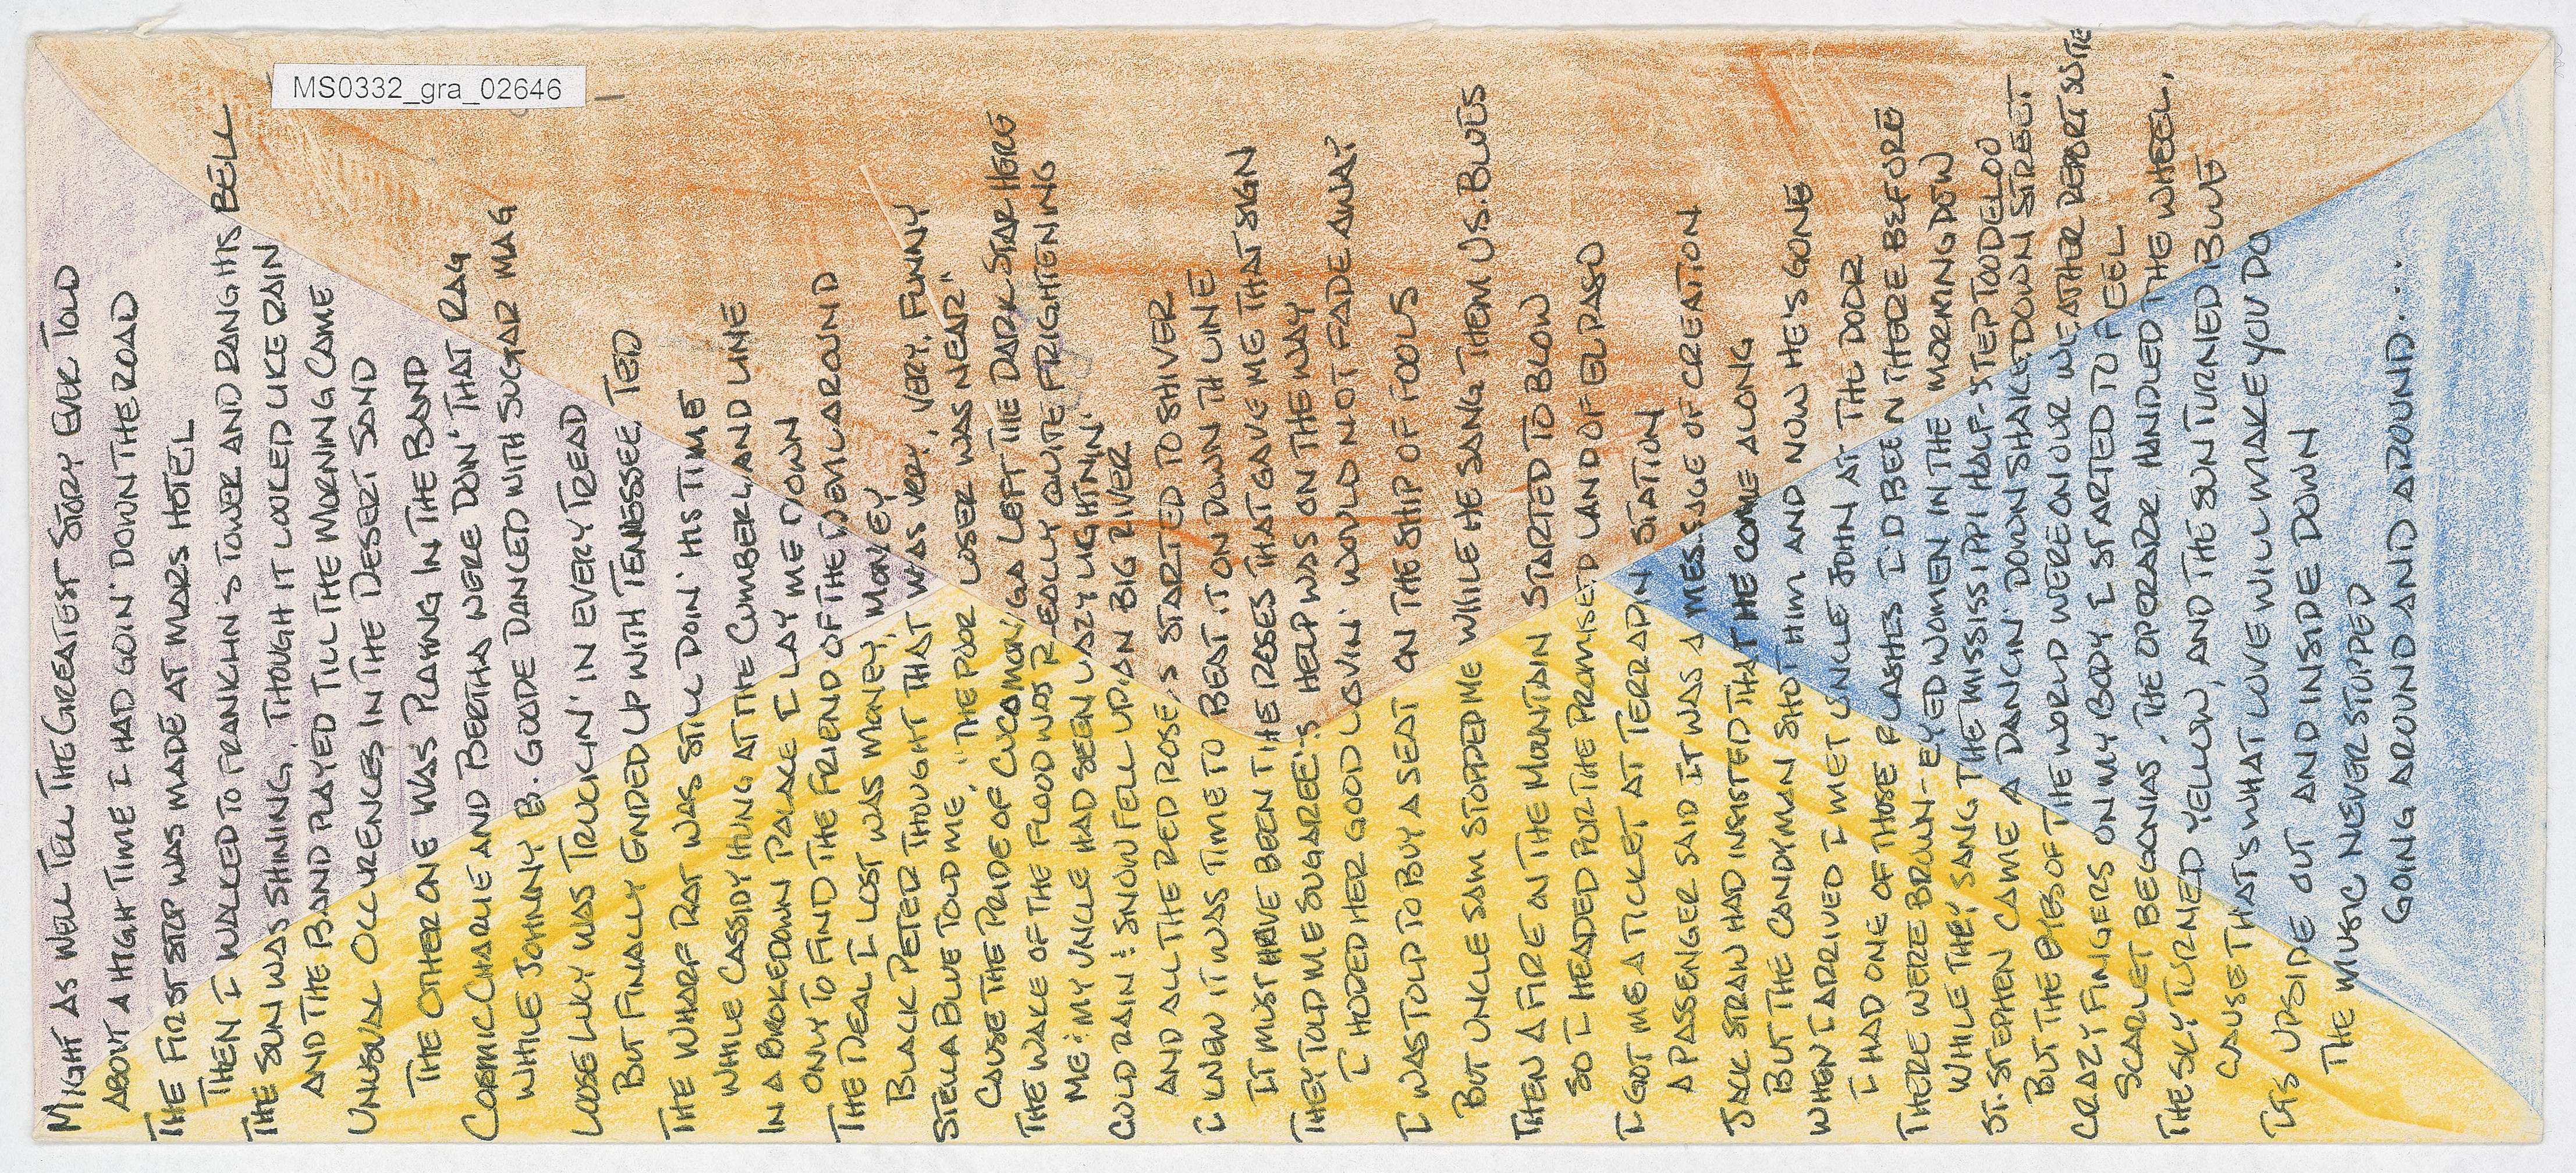 MS0332_gra_02646
MIGHT AS WELL TELL THE GREATEST STORY EVER TOLD
ABOUT A HIGH TIME I HAD GOIN' DOWN THE ROAD
THE FIRST STOP WAS MADE AT MARS HOTEL
THEN I WALKED TO FRANKLIN'S TOWER AND RANG HIS BELL
THE SUN WAS SHINING, THOUGH IT LOOKED LIKE RAIN
AND THE BAND PLAYED TILL THE MORNING CAME
UNUSUAL OCCURENCES IN THE DESERT SAND
THE OTHER ONE WAS PLAYING IN THE BAND
COSMIC CHARLIE AND BERTHA WERE DOIN' THAT RAG
WHILE JOHNNY B. GOODE DANCED WITH SUGAR MAG
LOOSE LUCY WAS TRUCKIN' IN EVERY TREAD
BUT FINALLY ENDED UP WITH TENNESSEE TED
THE WHARF RAT WAS STILL DOIN' HIS TIME
WHILE CASSIDY HUNG AT THE CUMBERLAND LINE
IN A BROKEDOWN PALACE I LAY ME DOWN
ONLY TO FIND THE FRIEND OF THE DEVIL AROUND
THE DEAL I LOST WAS MONEY, MONEY
BLACK PETER THOUGHT THAT WAS VERY, VERY, FUNNY
STELLA BLUE TOLD ME, "THE POOR LOSER WAS NEAR"
CAUSE THE PRIDE OF CUCAMONGA LEFT THE DARK STAR HERE
THE WAKE OF THE FLOOD WAS REALLY QUITE FRIGHTENING
ME & MY UNCLE HAD SEEN LAZY LIGHTNIN'
COLD RAIN & SNOW FELL UPON BIG RIVER
AND ALL THE RED ROSES STARTED TO SHIVER
I KNEW IT WAS TIME TO BEAT IT ON DOWN TH LINE
IT MUST HAVE BEEN THE ROSES THAT GAVE ME THAT SIGN
THEY TOLD ME SUGAREE'S HELP WAS ON THE WAY
I HOPED HER GOOD LOVIN' WOULD NOT FADE AWAY
I WAS TOLD TO BUY A SEAT ON THE SHIP OF FOOLS
BUT UNCLE SAM STOPPED ME WHILE HE SANG THEM U.S. BLUES
THEN A FIRE ON THE MOUNTAIN STARTED TO BLOW
SO I HEADED FOR THE PROMISED LAND OF EL PASO
I GOT ME A TICKET AT TERRAPIN STATION
A PASSENGER SAID IT WAS A MESSAGE OF CREATION
JACK STRAW HAD INSISTED THAT HE COME ALONG
BUT THE CANDYMAN SHOT HIM AND NOW HE'S GONE
WHEN I ARRIVED I MET UNCLE JOHN AT THE DOOR
I HAD ONE OF THOSE FLASHES I'D BEEN THERE BEFORE
THERE WERE BROWN-EYED WOMEN IN THE MORNING DEW
WHILE THEY SANG THE MISSISSIPPI HALF-STEP TOODELOO
ST. STEPHEN CAME A DANCIN' DOWN SHAKEDOWN STREET
BUT THE EYES OF THE WORLD WERE ON OUR WEATHER REPORT SUITE
CRAZY FINGERS ON MY BODY I STARTED TO FEEL
SCARLET BEGONIAS, THE OPERAOR, HANDLED THE WHEEL,
THE SKY TURNED YELLOW, AND THE SUN TURNED BLUE
CAUSE THAT'S WHAT LOVE WILL MAKE YOU DO
IT'S UPSIDE OUT AND INSIDE DOWN
THE MUSIC NEVER STOPPED
GOING AROUND AND AROUND....